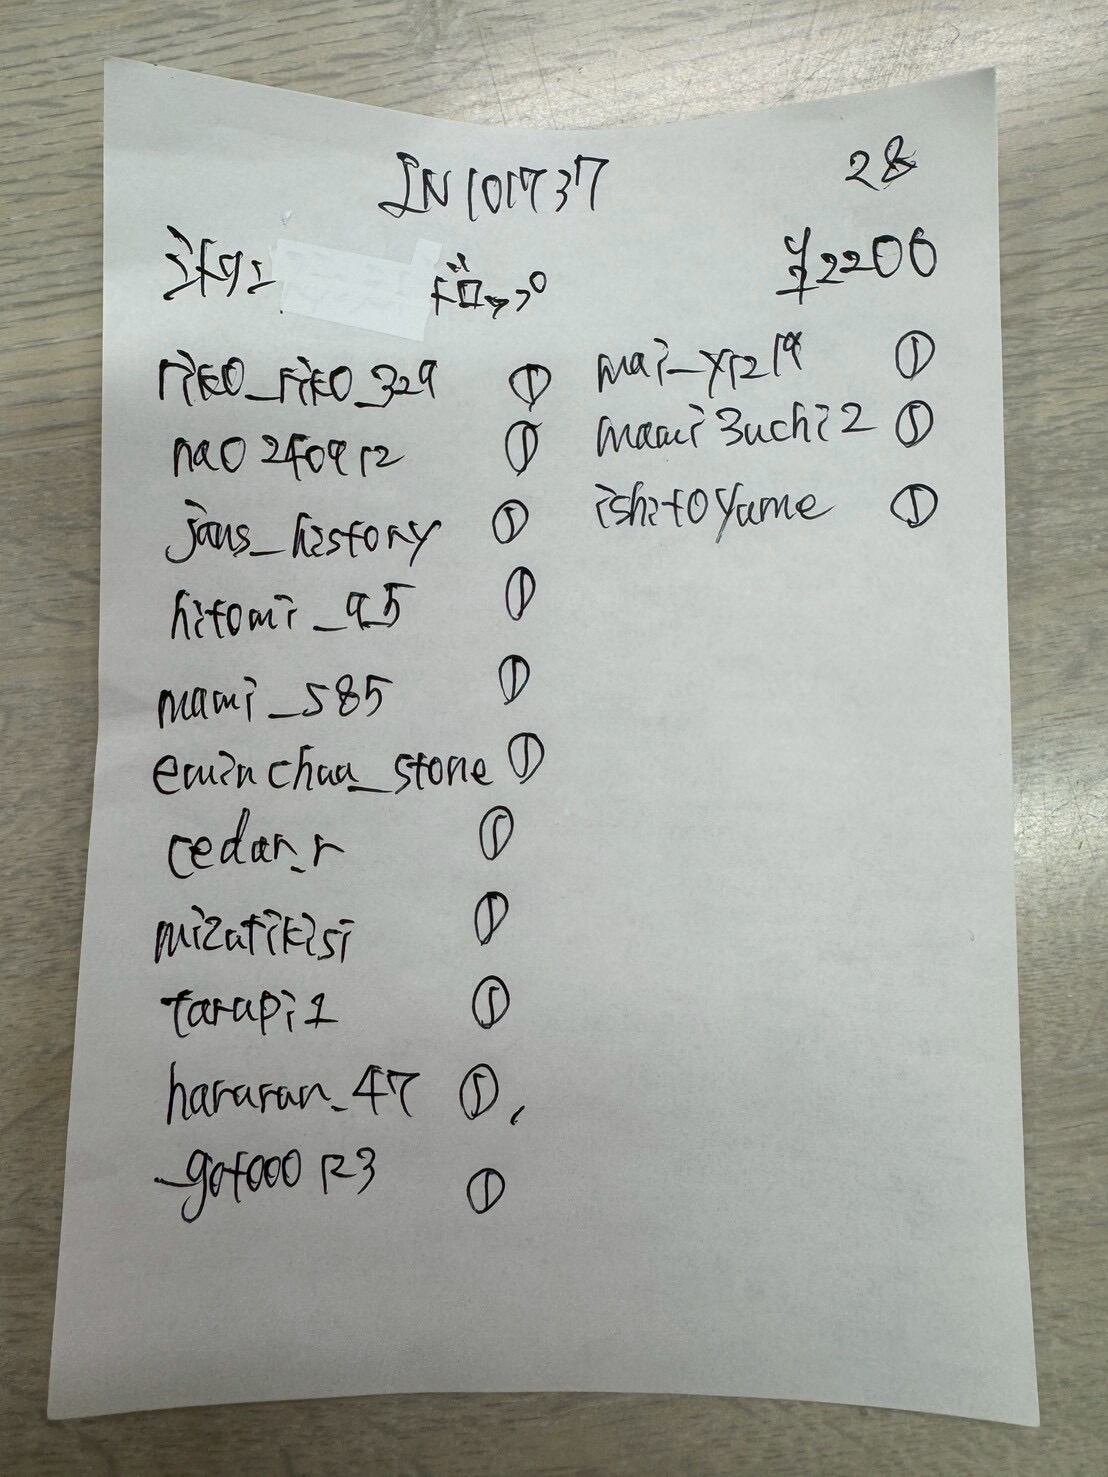 IN101737
28
ミトタエ ドロップ
¥2200
riko_riko_329 ①
nao240912 ①
jans_history ①
hitomi_95 ①
mami_585 ①
eminchan_stone ①
cedar_r ①
mizutikisi ①
tarupi1 ①
hararan_47 ①
_gotoooR3 ①
mai_y1219 ①
mami3uchi2 ①
ishitoyume ①